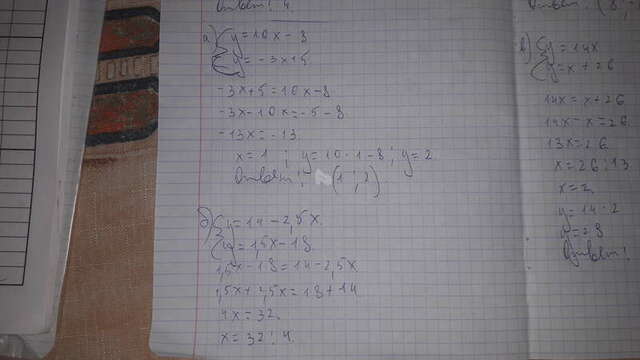 а) { y = 10x - 8
{ y = -3x + 5
-3x + 5 = 10x - 8
-3x - 10x = -5 - 8
-13x = -13
x = 1 ; y = 10 · 1 - 8 ; y = 2
Ответ: (1; 2)
б) { y = 14 - 2,5x
{ y = 1,5x - 18
1,5x - 18 = 14 - 2,5x
1,5x + 2,5x = 18 + 14
4x = 32
x = 32 : 4
в) { y = 14x
{ y = x + 26
14x = x + 26
14x - x = 26
13x = 26
x = 26 : 13
x = 2
y = 14 · 2
y = 28
Ответ: